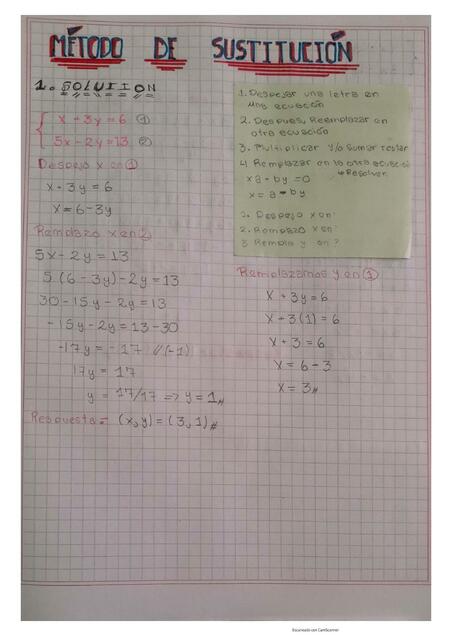 MÉTODO DE SUSTITUCIÓN
1. SOLUTION
x + 3y = 6 ①
5x - 2y = 13 ②
Despejo x en ①
x + 3y = 6
x = 6 - 3y
Remplazo x en 2
5x - 2y = 13
5 (6 - 3y) - 2y = 13
30 - 15y - 2y = 13
- 15y - 2y = 13 - 30
- 17y = - 17 //(-1)
17y = 17
y = 17/17 => y = 1 //
Respuesta = (x,y) = (3,1) //
1. Despejar una letra en
una ecuación
2. Despues, Reemplazar en
otra ecuación
3. Multiplicar y/o sumar restar
4 Remplazar en la otra ecuació
Resolver
x a - by = 0
x = a - by
1. Despejo x en:
2. Remplazo x en:
3 Rempla y en ?
Remplazamos y en ①
x + 3y = 6
x + 3(1) = 6
x + 3 = 6
x = 6 - 3
x = 3 //
Escaneado con CamScanner